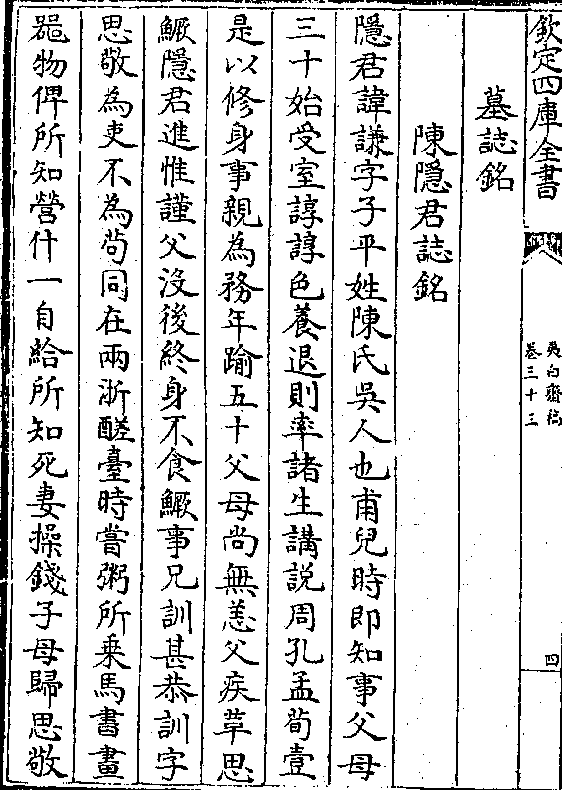 欽定四庫全書
夷白齋稿
卷三十三
四
墓誌銘
陳隱君誌銘
隱君諱謙字子平姓陳氏吳人也甫兒時即知事父母
三十始受室諄諄色養退則率諸生講說周孔孟荀壹
是以修身事親為務年踰五十父母尚無恙父疾革思
鱖隱君進惟謹父沒後終身不食鱖事兄訓甚恭訓字
思敬為吏不為苟同在兩浙醝臺時嘗粥所乗馬書畫
器物俾所知營什一自給所知死妻操錢子母歸思敬